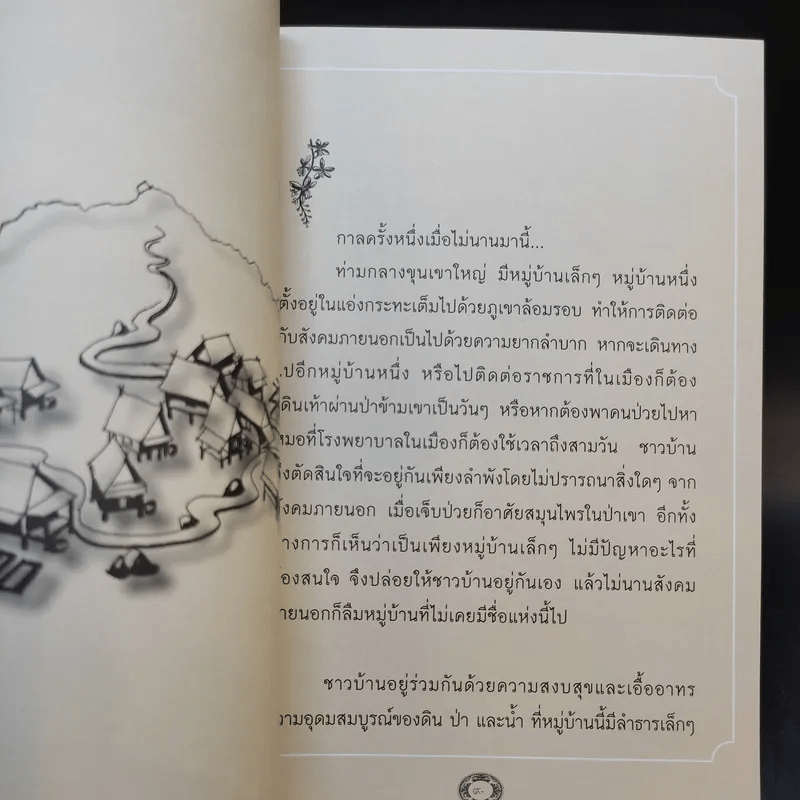 กาลครั้งหนึ่งเมื่อไม่นานมานี้...
ท่ามกลางขุนเขาใหญ่ มีหมู่บ้านเล็กๆ หมู่บ้านหนึ่ง
ตั้งอยู่ในแอ่งกระทะเต็มไปด้วยภูเขาล้อมรอบ ทำให้การติดต่อ
กับสังคมภายนอกเป็นไปด้วยความยากลำบาก หากจะเดินทาง
ไปอีกหมู่บ้านหนึ่ง หรือไปติดต่อราชการที่ในเมืองก็ต้อง
เดินเท้าผ่านป่าข้ามเขาเป็นวันๆ หรือหากต้องพาคนป่วยไปหา
หมอที่โรงพยาบาลในเมืองก็ต้องใช้เวลาถึงสามวัน ชาวบ้าน
จึงตัดสินใจที่จะอยู่กันเพียงลำพังโดยไม่ปรารถนาสิ่งใดๆ จาก
สังคมภายนอก เมื่อเจ็บป่วยก็อาศัยสมุนไพรในป่าเขา อีกทั้ง
ทางการก็เห็นว่าเป็นเพียงหมู่บ้านเล็กๆ ไม่มีปัญหาอะไรที่
ต้องสนใจ จึงปล่อยให้ชาวบ้านอยู่กันเอง แล้วไม่นานสังคม
ภายนอกก็ลืมหมู่บ้านที่ไม่เคยมีชื่อแห่งนี้ไป
ชาวบ้านอยู่ร่วมกันด้วยความสงบสุขและเอื้ออาทร
ความอุดมสมบูรณ์ของดิน ป่า และน้ำ ที่หมู่บ้านนี้มีลำธารเล็กๆ